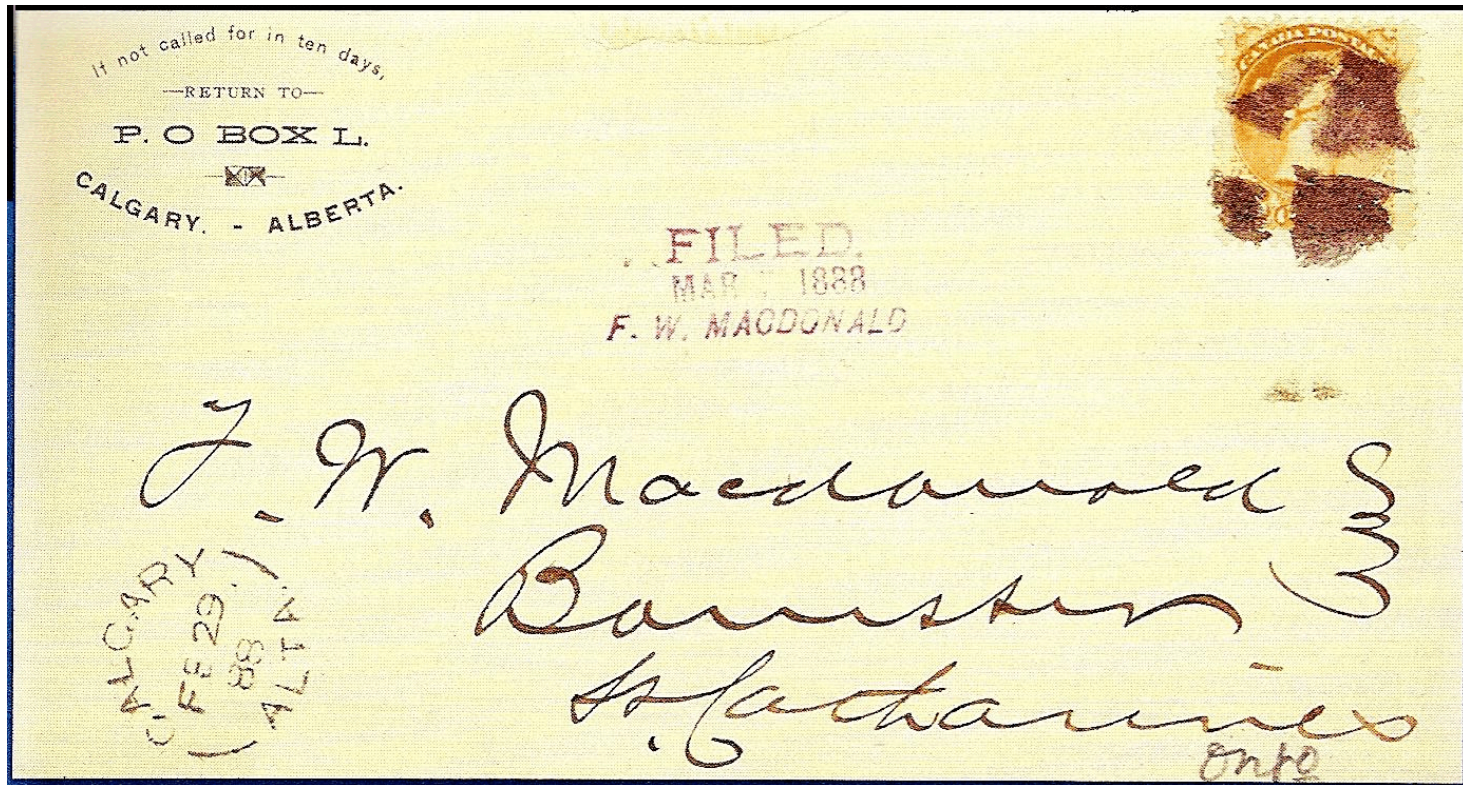 If not called for in ten days,
—RETURN TO—
P. O BOX L.
CALGARY. - ALBERTA.
CANADA POSTAG
FILED.
MAR 1888
F. W. MACDONALD
F. W. Macdonald
Barrister
St. Catharines
Onto
CALGARY
FE 29
88
ALTA